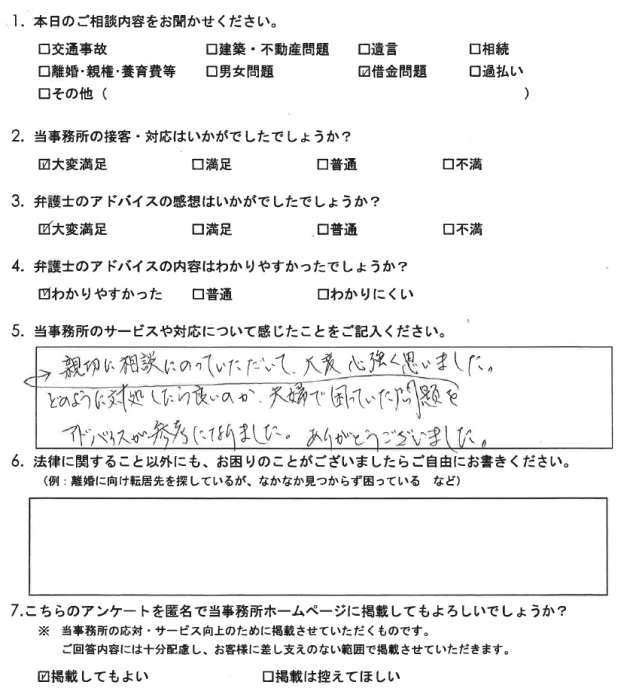 1. 本日のご相談内容をお聞かせください。
□交通事故 □建築・不動産問題 □遺言 □相続
□離婚・親権・養育費等 □男女問題 ☑借金問題 □過払い
□その他（ ）
2. 当事務所の接客・対応はいかがでしたでしょうか？
☑大変満足 □満足 □普通 □不満
3. 弁護士のアドバイスの感想はいかがでしたでしょうか？
☑大変満足 □満足 □普通 □不満
4. 弁護士のアドバイスの内容はわかりやすかったでしょうか？
☑わかりやすかった □普通 □わかりにくい
5. 当事務所のサービスや対応について感じたことをご記入ください。
親切に相談にのっていただいて、大変心強く思いました。
どのように対処したら良いのか、夫婦で困っていた問題を
アドバイスが参考になりました。ありがとうございました。
6. 法律に関すること以外にも、お困りのことがございましたらご自由にお書きください。
（例：離婚に向け転居先を探しているが、なかなか見つからず困っている など）
7.こちらのアンケートを匿名で当事務所ホームページに掲載してもよろしいでしょうか？
※ 当事務所の応対・サービス向上のために掲載させていただくものです。
ご回答内容には十分配慮し、お客様に差し支えのない範囲で掲載させていただきます。
☑掲載してもよい □掲載は控えてほしい